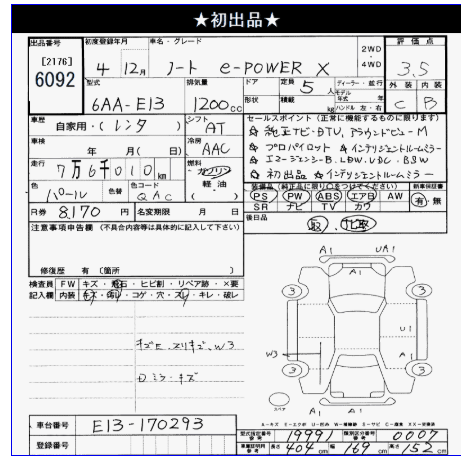 ★初出品★
出品番号 初度登録年月 車名・グレード 2WD 4WD 評価点
[2176] 6092 4 12月 ノート e-POWER X 3.5
型式 排気量 ドア 定員 5人 ディーラー・並行 外装 内装
6AA-E13 1200cc 形状 積載 kg モデル年式 年 ハンドル 左・右 C B
車歴 自家用・(レンタ) シフト AT セールスポイント(正常に機能するものに限ります)
車検 年 月( 日) 冷房 AAC ☆ 純正ナビ・DTV, アラウンドビューM
☆ プロパイロット ☆ インテリジェントルームミラー
走行 7万6千010km 燃料 ガソリン 軽・油 ( ) ☆ エマージェンシーB・LDW・VDC・BSW
☆ 初出品 ☆ インテリジェントルームミラー
色 パール 色替 色コード QAC 装備品(純正品に限り○をつけてください) 新車保証書
PS PW ABS エアB AW 有・無
SR ナビ TV カワ
R券 8,170円 名変期限 月 日 後日品 取, 記取
注意事項申告欄(不具合内容等は具体的に記入して下さい)
修復歴 有(箇所 )
検査員記入欄 FW キズ・飛石・ヒビ割・リペア跡・×要
内装 キズ・汚レ・コゲ・穴・スレ・キレ・破レ
キズE、スリキズ、W3
ロミラーキズ
A1 UA1
A1
3 3
U1
W3 A1
3 3
スペア A1 A1
A1
A-キズ E-エクボ U-凹み
車台番号 E13-170293
登録番号
型式指定番号 19991 類別区分番号 0007
長さ 404cm 幅 169cm 高さ 152cm